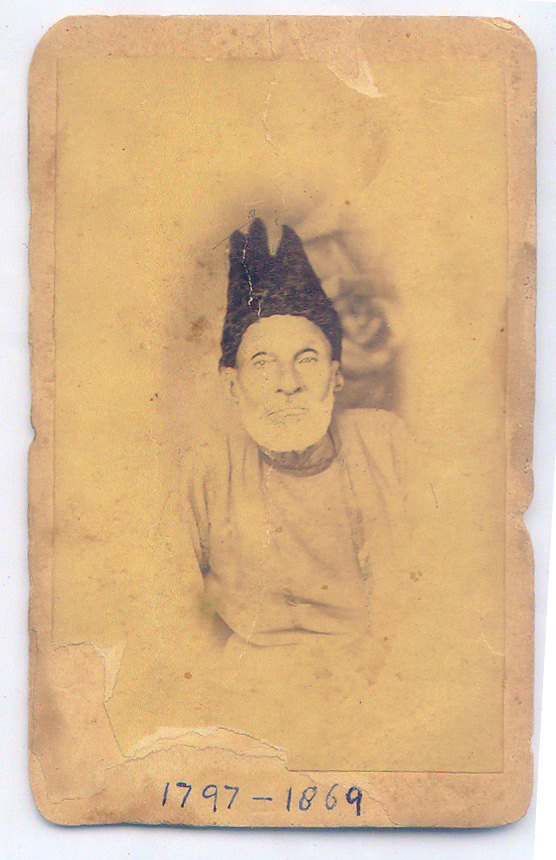 1797 – 1869